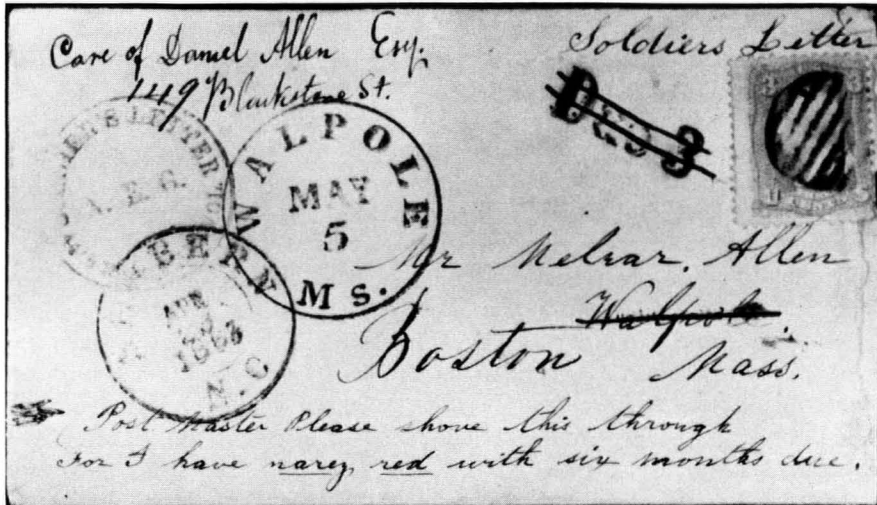 Care of Daniel Allen Esq.
149 Blackstone St.
Soldiers Letter
DUE 3
SOLDIER'S LETTER
A. E. G.
WALPOLE
MAY
5
MS.
NEW BERN
APR
1863
N.C
Mr Melzar. Allen
Walpole.
Boston Mass.
Post Master Please shove this through
For I have narey red with six months due.